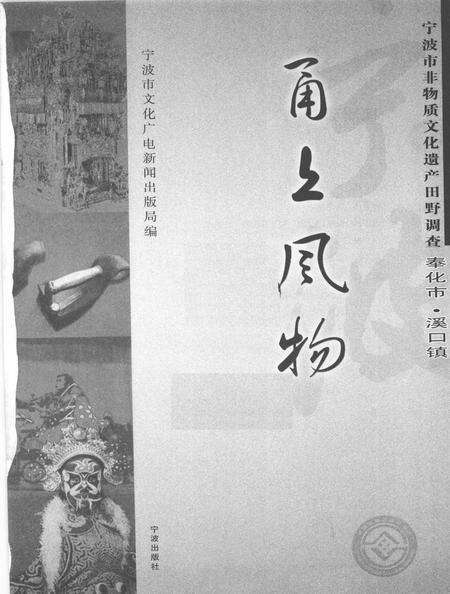 宁波市非物质文化遗产田野调查
奉化市·溪口镇
甬上风物
宁波市文化广电新闻出版局编
宁波出版社